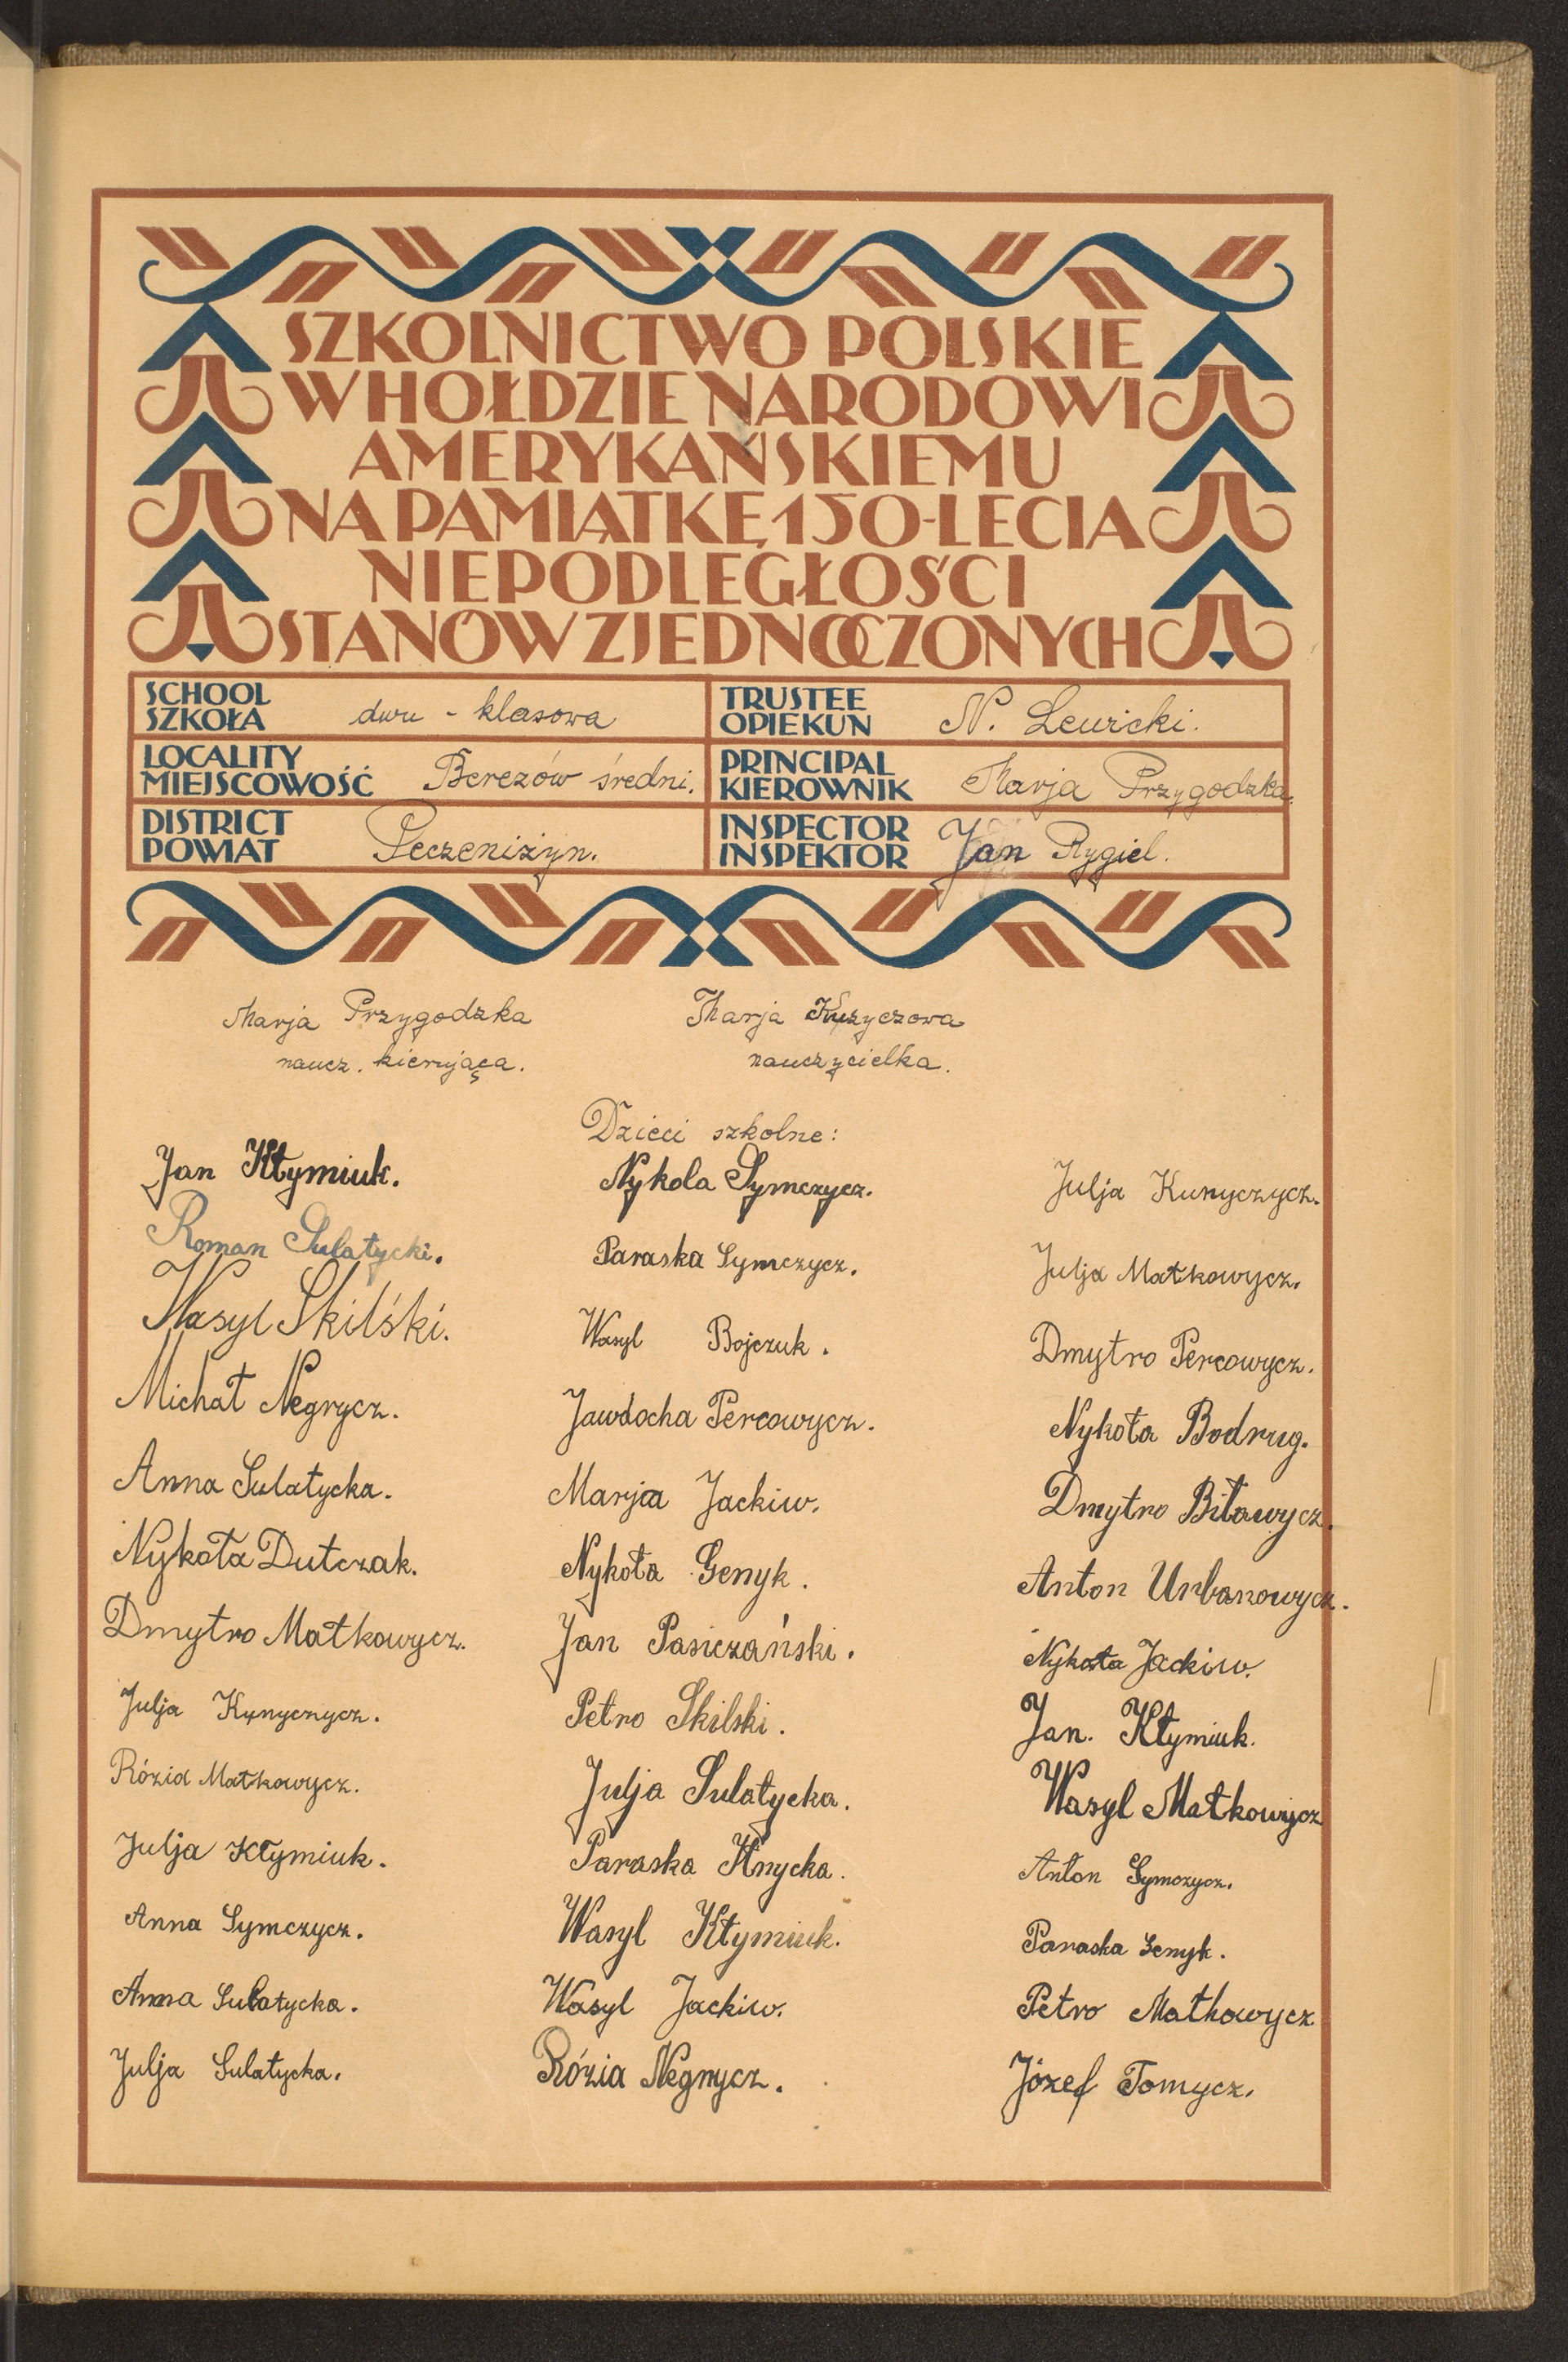 SZKOLNICTWO POLSKIE
W HOŁDZIE NARODOWI
AMERYKAŃSKIEMU
NA PAMIĄTKĘ 150-LECIA
NIEPODLEGŁOŚCI
STANÓW ZJEDNOCZONYCH
SCHOOL
SZKOŁA dwu - klasowa
TRUSTEE
OPIEKUN N. Lewicki.
LOCALITY
MIEJSCOWOŚĆ Berezów średni.
PRINCIPAL
KIEROWNIK Marja Przygodzka.
DISTRICT
POWIAT Peczeniżyn.
INSPECTOR
INSPEKTOR Jan Rygiel.
Marja Przygodzka
naucz. kierująca.
Marja Kuzyczowa
nauczycielka.
Dzieci szkolne:
Jan Kłymiuk.
Roman Sulatycki.
Wasyl Skilśki.
Michał Negrycz.
Anna Sulatycka.
Nykoła Dutczak.
Dmytro Matkowycz.
Julja Kynyczycz.
Rózia Matkowycz.
Julja Kłymiuk.
Anna Symczycz.
Anna Sulatycka.
Julja Sulatycka.
Nykola Symczycz.
Paraska Symczycz.
Wasyl Bojczuk.
Jawdocha Percowycz.
Marja Jackiw.
Nykoła Genyk.
Jan Pasiczański.
Petro Skilski.
Julja Sulatycka.
Paraska Knycka.
Wasyl Kłymiuk.
Wasyl Jackiw.
Rózia Negrycz.
Julja Kunyczycz.
Julja Matkowycz.
Dmytro Percowycz.
Nykoła Bodrug.
Dmytro Biławycz.
Anton Urbanowycz.
Nykoła Jackiw.
Jan. Kłymiuk.
Wasyl Matkowycz
Anton Symczycz.
Paraska Genyk.
Petro Matkowycz
Józef Tomycz.